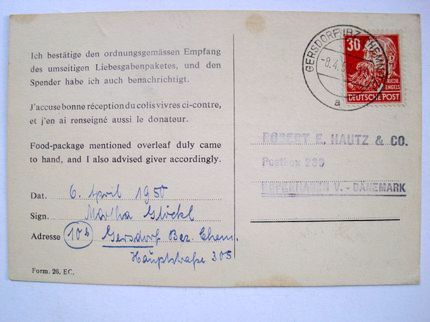 Ich bestätige den ordnungsgemässen Empfang
des umseitigen Liebesgabenpaketes, und den
Spender habe ich auch benachrichtigt.
J'accuse bonne réception du colis vivres ci-contre,
et j'en ai renseigné aussi le donateur.
Food-package mentioned overleaf duly came
to hand, and I also advised giver accordingly.
Dat. 6. April 1950
Sign. Martha Glöckl
Adresse (10b) Gersdorf Bez. Chem.
Hauptstraße 305
Form. 26, EC.
30
ENGELS
DEUTSCHE POST
GERSDORF
-8.4.
a
ROBERT E. HAUTZ & CO.
Postbox 239
KOPENHAGEN V. - DÄNEMARK